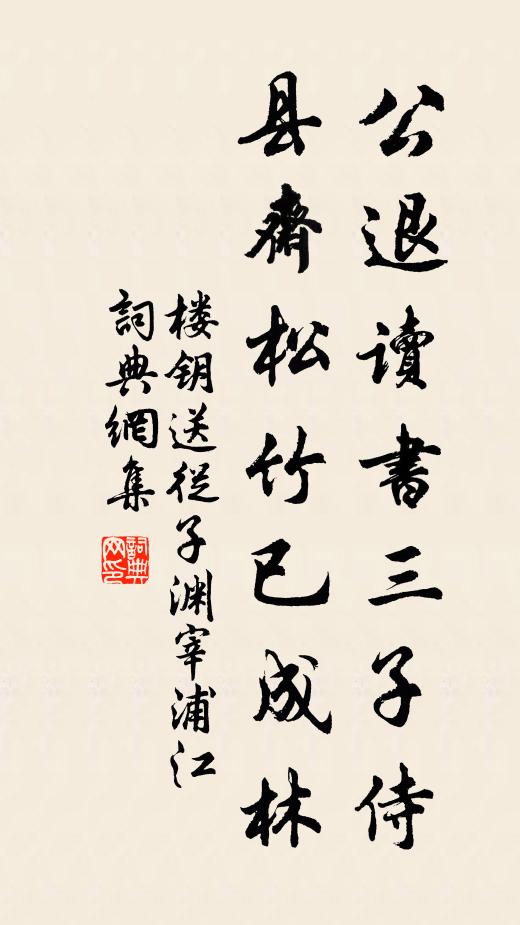 公退读書三子侍
县齋松竹已成林
楼钥送從子渊宰浦江
詞典網集
詞典网印